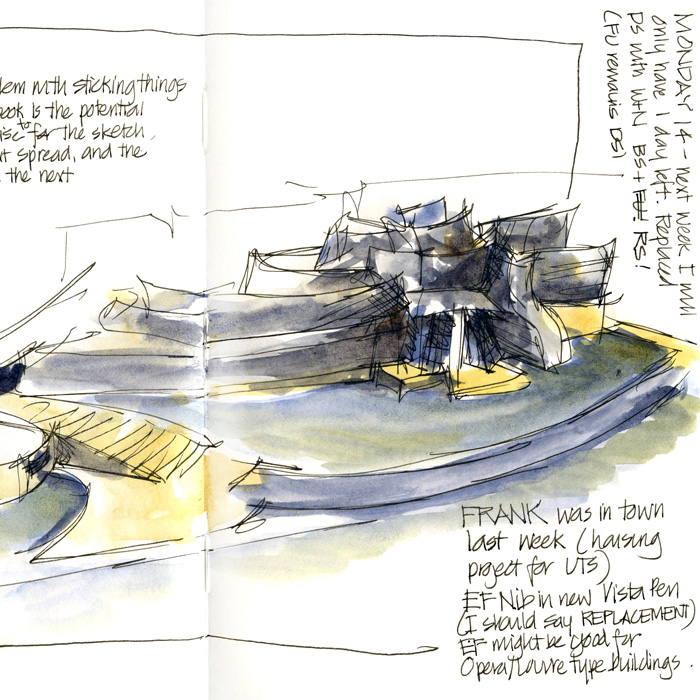 lem with sticking things
book is the potential
to for the sketch,
spread, and the
the next
MONDAY 14 - next week I will
only have 1 day left. Replaced
PS with W+N BS+ RS!
(FU remains DS)
FRANK was in town
last week (housing
project for UTS)
EF Nib in new Vista Pen
(I should say REPLACEMENT)
EF might be good for
Opera/Louvre type buildings.